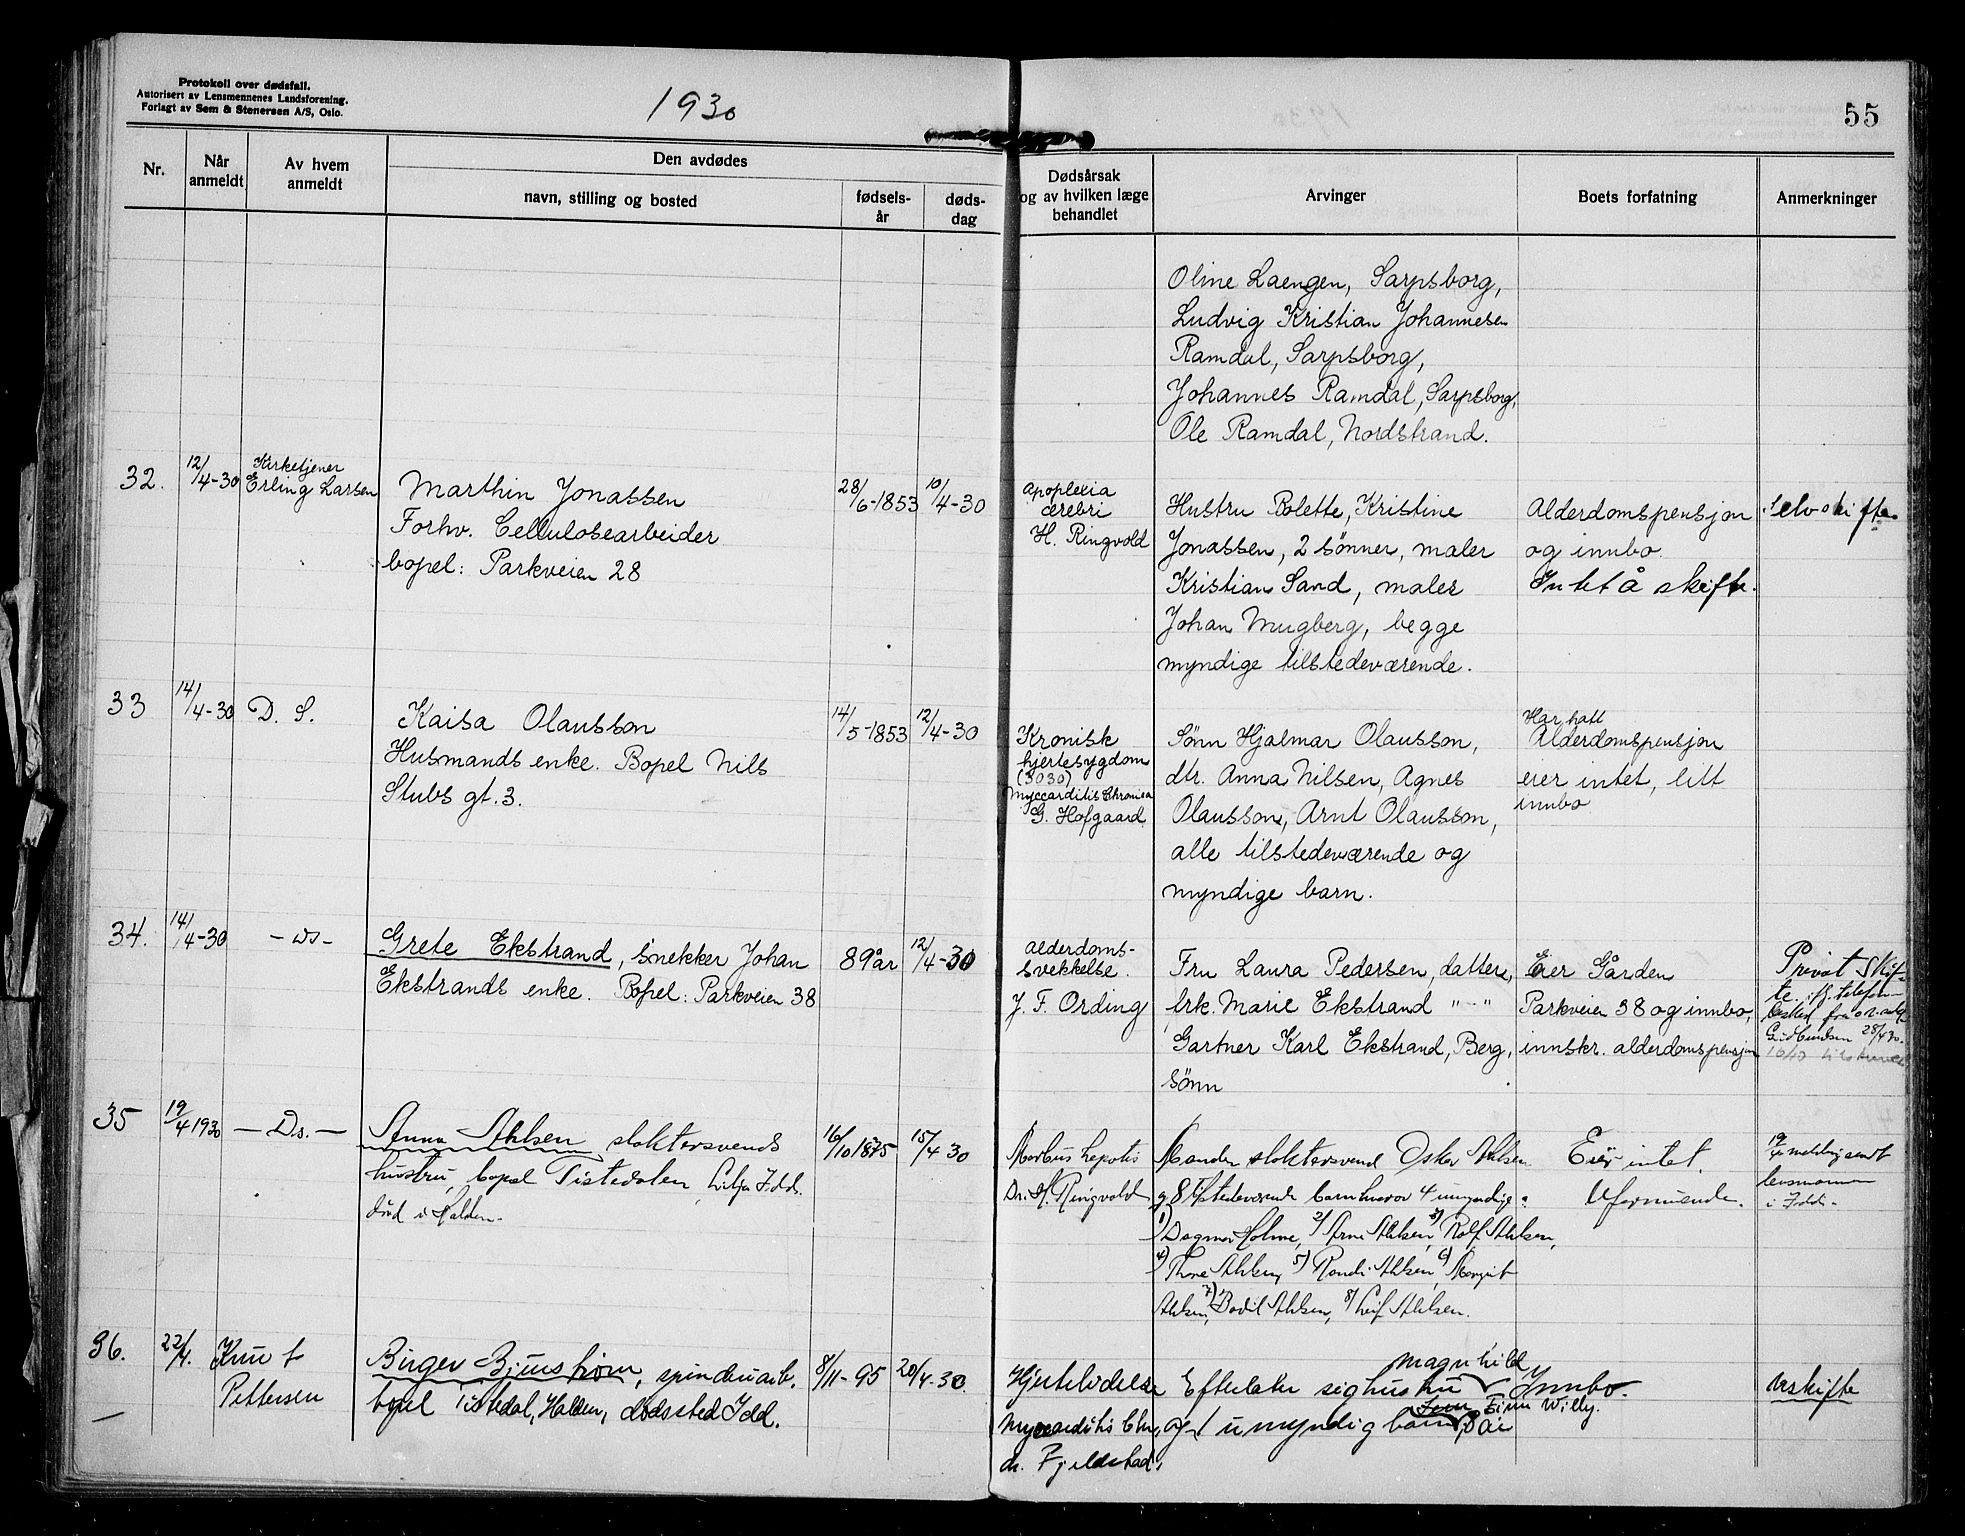 Protokoll over dødsfall.
Autorisert av Lensmennenes Landsforening.
Forlagt av Sem & Stenersen A/S, Oslo.
1930
55
Nr.
Når anmeldt
Av hvem anmeldt
Den avdødes
navn, stilling og bosted
fødsels-år
døds-dag
Dødsårsak og av hvilken læge behandlet
Arvinger
Boets forfatning
Anmerkninger
Oline Laengen, Sarpsborg,
Ludvig Kristian Johannesen
Ramdal, Sarpsborg,
Johannes Ramdal, Sarpsborg,
Ole Ramdal, Nordstrand.
32.
12/4-30
Kirketjener
Erling Larsen
Marthin Jonassen
Forhv. Cellulosearbeider
bopel: Parkveien 28
28/6-1853
10/4-30
Apoplexia
cerebri
H. Ringvold
Hustru Bolette, Kristine
Jonassen, 2 sønner, maler
Kristian Sand, maler
Johan Mugberg, begge
myndige tilstedeværende.
Alderdomspensjon
og innbo.
Intet å skifte.
Selvskifte
33
14/4-30
D. S.
Kaisa Olausson
Husmands enke. Bopel Nils
Stubs gt. 3.
14/5-1853
12/4-30
Kronisk
hjertesygdom
(3030)
Myccarditis Chronica
G. Hofgaard
Sønn Hjalmar Olausson,
dtr. Anna Nilsen, Agnes
Olausson, Arnt Olausson,
alle tilstedeværende og
myndige barn.
Har hatt
Alderdomspensjon
eier intet, litt
innbo
34.
14/4-30
- ds -
Grete Ekstrand, snekker Johan
Ekstrands enke. Bopel: Parkveien 38
89 år
12/4-30
Alderdoms-
svekkelse.
J. F. Ording
Fru Laura Pedersen, datter,
frk. Marie Ekstrand " - "
Gartner Karl Ekstrand, Berg,
sønn
Eier Gården
Parkveien 38 og innbo,
innskr. alderdomspensjon
Privat Skif-
te. telefon-
besked fra
28/4 30.
35
19/4 1930
- D.s. -
Anna Ahlsen slaktersvends
hustru, bopel Tistedalen, Idd.
død i Halden.
16/10 1875
15/4 30
Morbus hepatis
Dr. H. Ringvold
Manden slaktersvend Oskar Ahlsen
og 8 tilstedeværende barn hvorav 4 umyndige.
1) Dagmar Holme, 2) Arne Ahlsen, 3) Rolf Ahlsen,
4) Thore Ahlsen, 5) Randi Ahlsen, 6) Margit
Ahlsen, 7) Bodil Ahlsen, 8) Leif Ahlsen.
Eier intet.
Uformuende.
19/4 melding sendt
lensmannen
i Idd.
36.
22/4.
Knut
Pettersen
Birger Bjurstrøm, spinderiarb.
bopel Tistedal, Halden, dødssted Idd.
8/11-95
20/4-30
Hjertelidelse
Myocarditis Chr.
dr. Fjeldstad,
Magnhild
Efterlater sig hustru
Finn Willy.
og 1 umyndig barn, 8 år
Innbo.
Arskifte